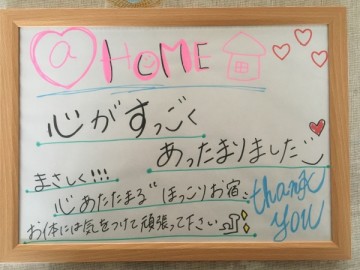 @HOME
心がすっごく
あったまりました
まさしく!!!
心あたたまる〝ほっこりお宿〟
お体には気をつけて頑張って下さい
thank
you